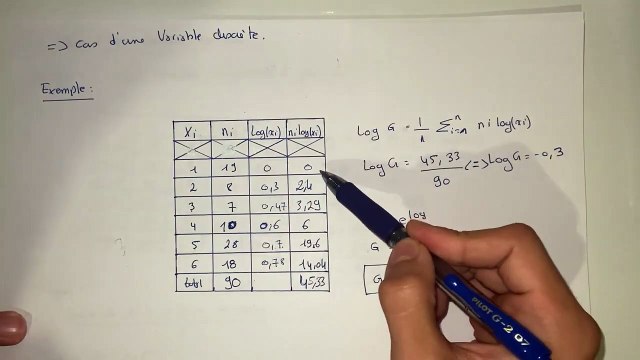 => cas d'une Variable discrète.
Exemple:
Xi ni Log(xi) ni log(xi)
1 19 0 0
2 8 0,3 2,4
3 7 0,47 3,29
4 10 0,6 6
5 28 0,7 19,6
6 18 0,78 14,04
total 90 45,33
Log G = 1/n Σ ni log(xi)
Log G = 45,33/90 <=> Log G = -0,3
log
G
G
PILOT G-2 07